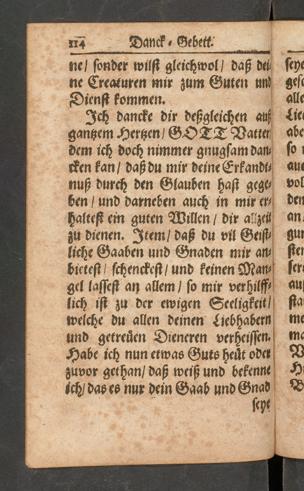 114 Danck-Gebett.
ne/ sonder wilst gleichwol/ daß dei-
ne Creaturen mir zum Guten und
Dienst kommen.
Ich dancke dir deßgleichen auß
gantzem Hertzen/ GOTT Vatter
dem ich doch nimmer gnugsam dan-
cken kan/ daß du mir deine Erkandt-
nuß durch den Glauben hast gege-
ben/ und darneben auch in mir er-
haltest ein guten Willen/ dir allzeit
zu dienen. Item/ daß du vil Geist-
liche Gaaben und Gnaden mir an-
bietest/ schenckest/ und keinen Man-
gel lassest an allem/ so mir verhilff-
lich ist zu der ewigen Seeligkeit/
welche du allen deinen Liebhabern
und getreüen Dieneren verheissen.
Habe ich nun etwas Guts heüt oder
zuvor gethan/ daß weiß und bekenne
ich/ das es nur dein Gaab und Gnad
seye